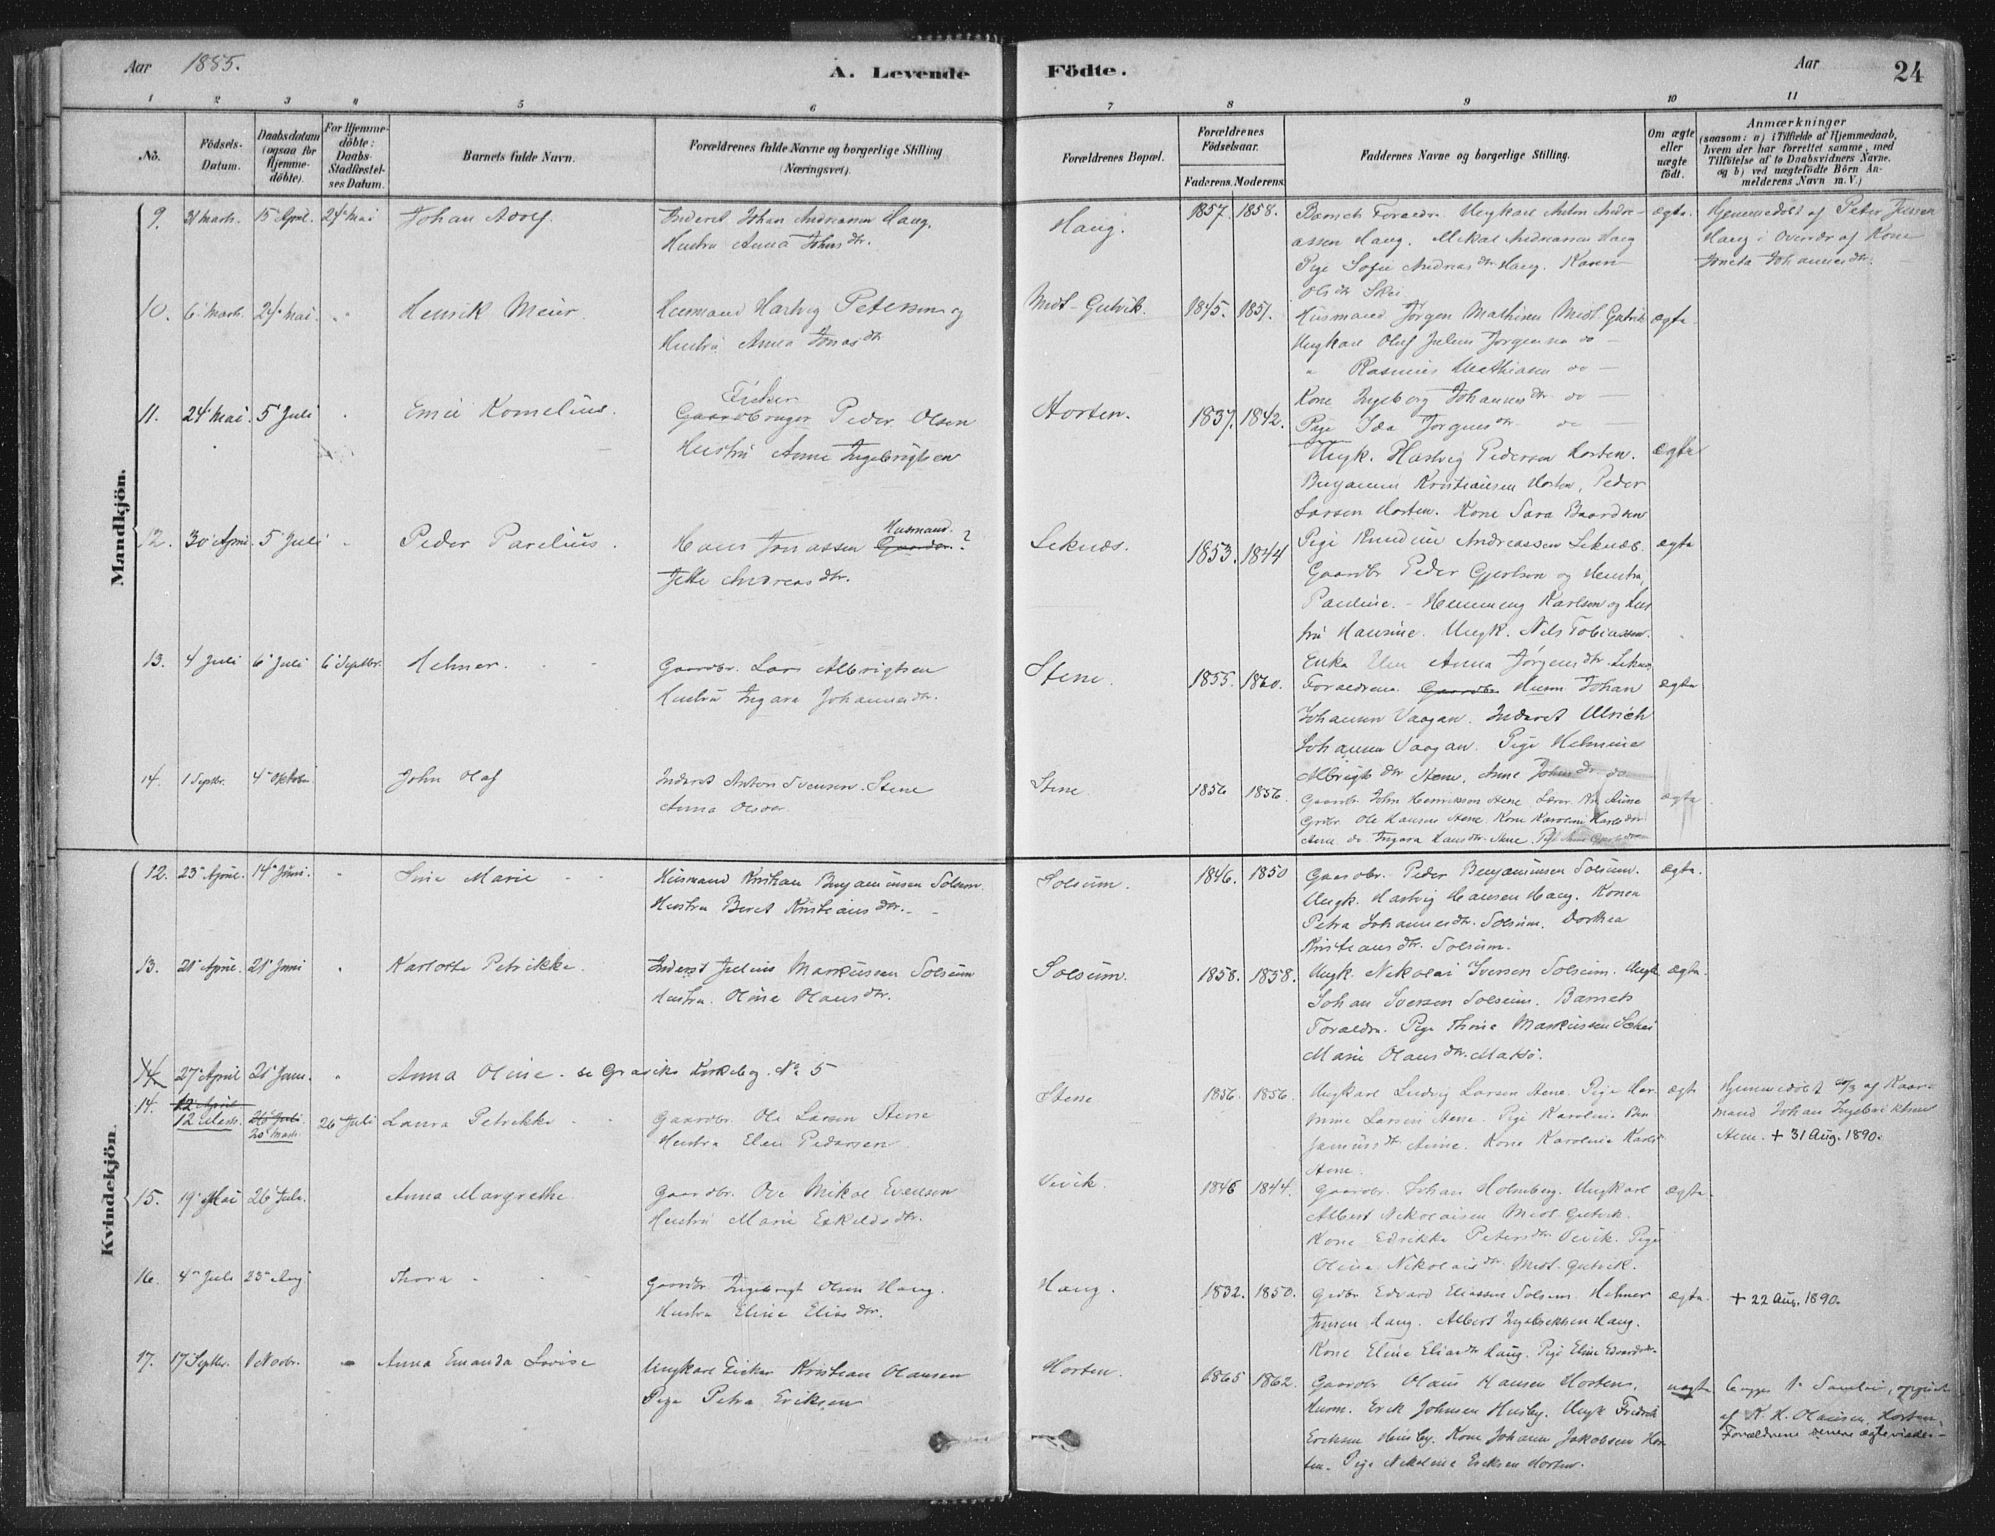 Aar 1885.
A. Levende
Födte.
Aar
24
1 2 3 4 5 6 7 8 9 10 11
No.
Födsels-
Datum.
Daabsdatum
(ogsaa for
Hjemme-
döbte).
For Hjemme-
döbte:
Daabs-
Stadfæstel-
ses Datum.
Barnets fulde Navn.
Forældrenes fulde Navne og borgerlige Stilling
(Næringsvei).
Forældrenes Bopæl.
Forældrenes
Födselsaar.
Faderens. Moderens.
Faddernes Navne og borgerlige Stilling.
Om ægte
eller
uægte
födt.
Anmærkninger
(saasom: a) i Tilfælde af Hjemmedaab,
hvem der har forrettet samme, med
Tilföielse af to Daabsvidners Navne,
og b) ved uægtefödte Börn An-
melderens Navn m. V.)
Mandkjön.
9. 31 Marts. 15 April. 24 Mai Johan Adolf
Inderst Johan Andreassen Haug.
Hustru Anna Johnsdtr.
Haug.
1857. 1858.
Barnets Forældre. Ungkarl Anton Andre-
assen Haug. Mikal Andreassen Haug
Pige Sofie Andreasdtr Haug. Karen
Olsdtr Skei
ægte.
Hjemmedöbt af Peter Jensen
Haug i Overvær af Kone
Johannesdtr.
10. 6 Marts. 24 Mai. Henrik Meier.
Husmand Hartvig Petersen og
Hustru Anna Jonasdtr
Midt-Gutvik.
1845. 1851.
Husmand Jørgen Mathisen Midt Gutvik
Ungkarl Oluf Julius Jørgensen do
" Rasmus Mathiasen do
Kone Ingeborg Johannesdtr do
Pige Ida Jørgensdtr do
ægte
11. 24 Mai. 5 Juli Emil Kornelius.
Fisker
Gaardbruger Peder Olsen
Hustru Anne Ingebrigtsen
Horten.
1837. 1842.
Ungk. Hartvig Pedersen Horten.
Benjamin Kristiansen Horten, Peder
Larsen Horten. Kone Sara Baardsen
ægte
12. 30 April 5 Juli Peder Parelius.
Hans Jonassen Husmand. ?
Jette Andreasdtr.
Leknæs.
1853. 1844
Pige Andreassen Leknæs.
Gaardbr Peder og Hustru
Pauline. - Hemming Karlsen og Hus
tru Hansine. Ungk. Nils Tobiassen.
Anna Jørgensdtr. Leknæs
ægte
13. 4 Juli 6 Juli 6 Septbr. Helmer.
Gaardbr. Lars Albrigtsen
Hustru Ingara Johannesdtr.
Stene.
1855. 1860.
Forældrene. Gaardbr Husm Johan
Johansen Vaagan. Inderst Ulrich
Johansen Vaagan. Pige Helmine
Albrigtsdtr Stene. Anne Johnsdtr do
ægte
14. 1 Septbr. 4 Oktober John Olaf
Inderst Anton Svensen Stene
Anna Olsdtr
Stene
1856 1856.
Gaardbr. John Henriksen Stene
Grdbr. Ole Hansen Stene. Kone Karoline Karlsdtr
Stene do Ingara Hansdtr Stene.
ægte
Kvindekjön.
12. 23 April. 14 Juni. Marie
Husmand Kristian Benjaminsen Solsum.
Hustru Beret Kristiansdtr.
Solsum.
1846. 1850
Gaardbr. Peder Benjaminsen Solsum.
Ungk. Hartvig Hansen Haug. Konen
Petra Johannesdtr. Solsum. Dorthea
Kristiansdtr. Solsum.
ægte.
13. 21 April. 21 Juni Karlotte Petrikke.
Inderst Julius Markussen Solsum
Hustru. Oline Olausdtr.
Solsum.
1858. 1858.
Ungk. Nikolai Iversen Solsum. Ungk
Johan Iversen Solsum. Barnets
Forældre. Pige Markussen
Marie Olausdtr. Matsö.
ægte.
14. 27 April 21 Juni. Anna Oline. se Kirkebog. No 5
14. 12 April
12 Marts 26 Juli
20 Marts. 26 Juli Laura Petrikke
Gaardbr. Ole Larsen Stene
Hustru Elen Pedersen
Stene
1856. 1856.
Ungkarl Ludvig Larsen Stene. Pige
Larsen Stene. Pige Karoline Ben
jaminsdtr Stene. Kone Karoline Karls
Stene.
ægte
Hjemmedöbt 20/3 af Kaar-
mand Johan Ingebriktsen
Stene. + 31 Aug. 1890.
15. 19 Mai 26 Juli. Anna Margrethe
Gaardbr. Ove Mikal Evensen
Hustru Marie Eskildsdtr.
Vevik.
1846 1844.
Gaardbr. Johan Holmberg. Ungkarl
Albert Nikolaisen Midt Gutvik.
Kone Edrikke Petersdtr Vevik. Pige
Oline Nikolaisdtr Midt-Gutvik.
ægte.
16. 4 Juli 23 Aug Thora
Gaardbr Ingebrigt Olsen Haug.
Hustru Eline Eliasdtr.
Haug.
1832. 1850.
Grdbr Edvard Eliassen Solsum. Helmer
Jensen Haug. Albert Ingebriktsen Haug.
Kone Eline Eliasdtr Haug. Pige Eline Edvardsdtr
ægte.
+ 22 Aug. 1890.
17. 17 Septbr. 1 Novbr. Anna Emanda Lovise
Ungkarl Fisker Kristian Olausen
Pige Petra Eriksen
Horten.
1865 1862.
Gaardbr Olaus Hansen Horten.
Husm. Erik Johnsen Husby. Ungk Fredrik
Eriksen Husby. Kone Johanna Jakobsen Hor
ten. Pige Nikoline Eriksen Horten.
uægte
1ste Samleie, opgivet
af K. H. Olausen Horten.
Forældrene senere ægteviede.